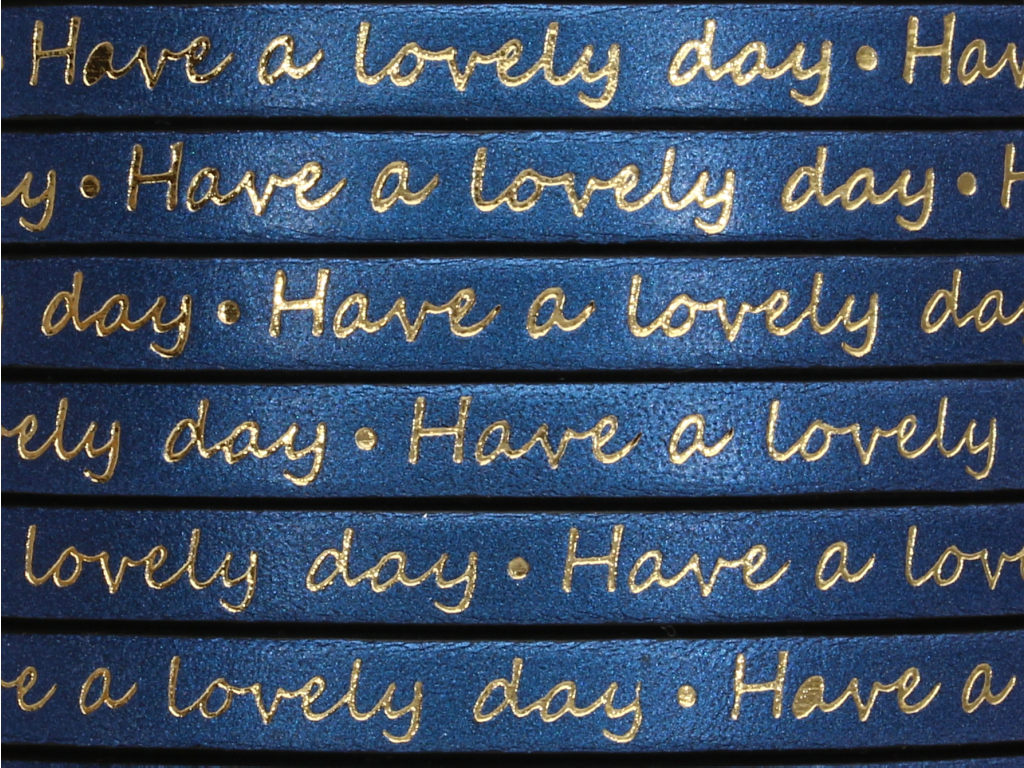 Have a lovely day • Hav
ay • Have a lovely day • H
day • Have a lovely da
ely day • Have a lovely
lovely day • Have a lov
e a lovely day • Have a